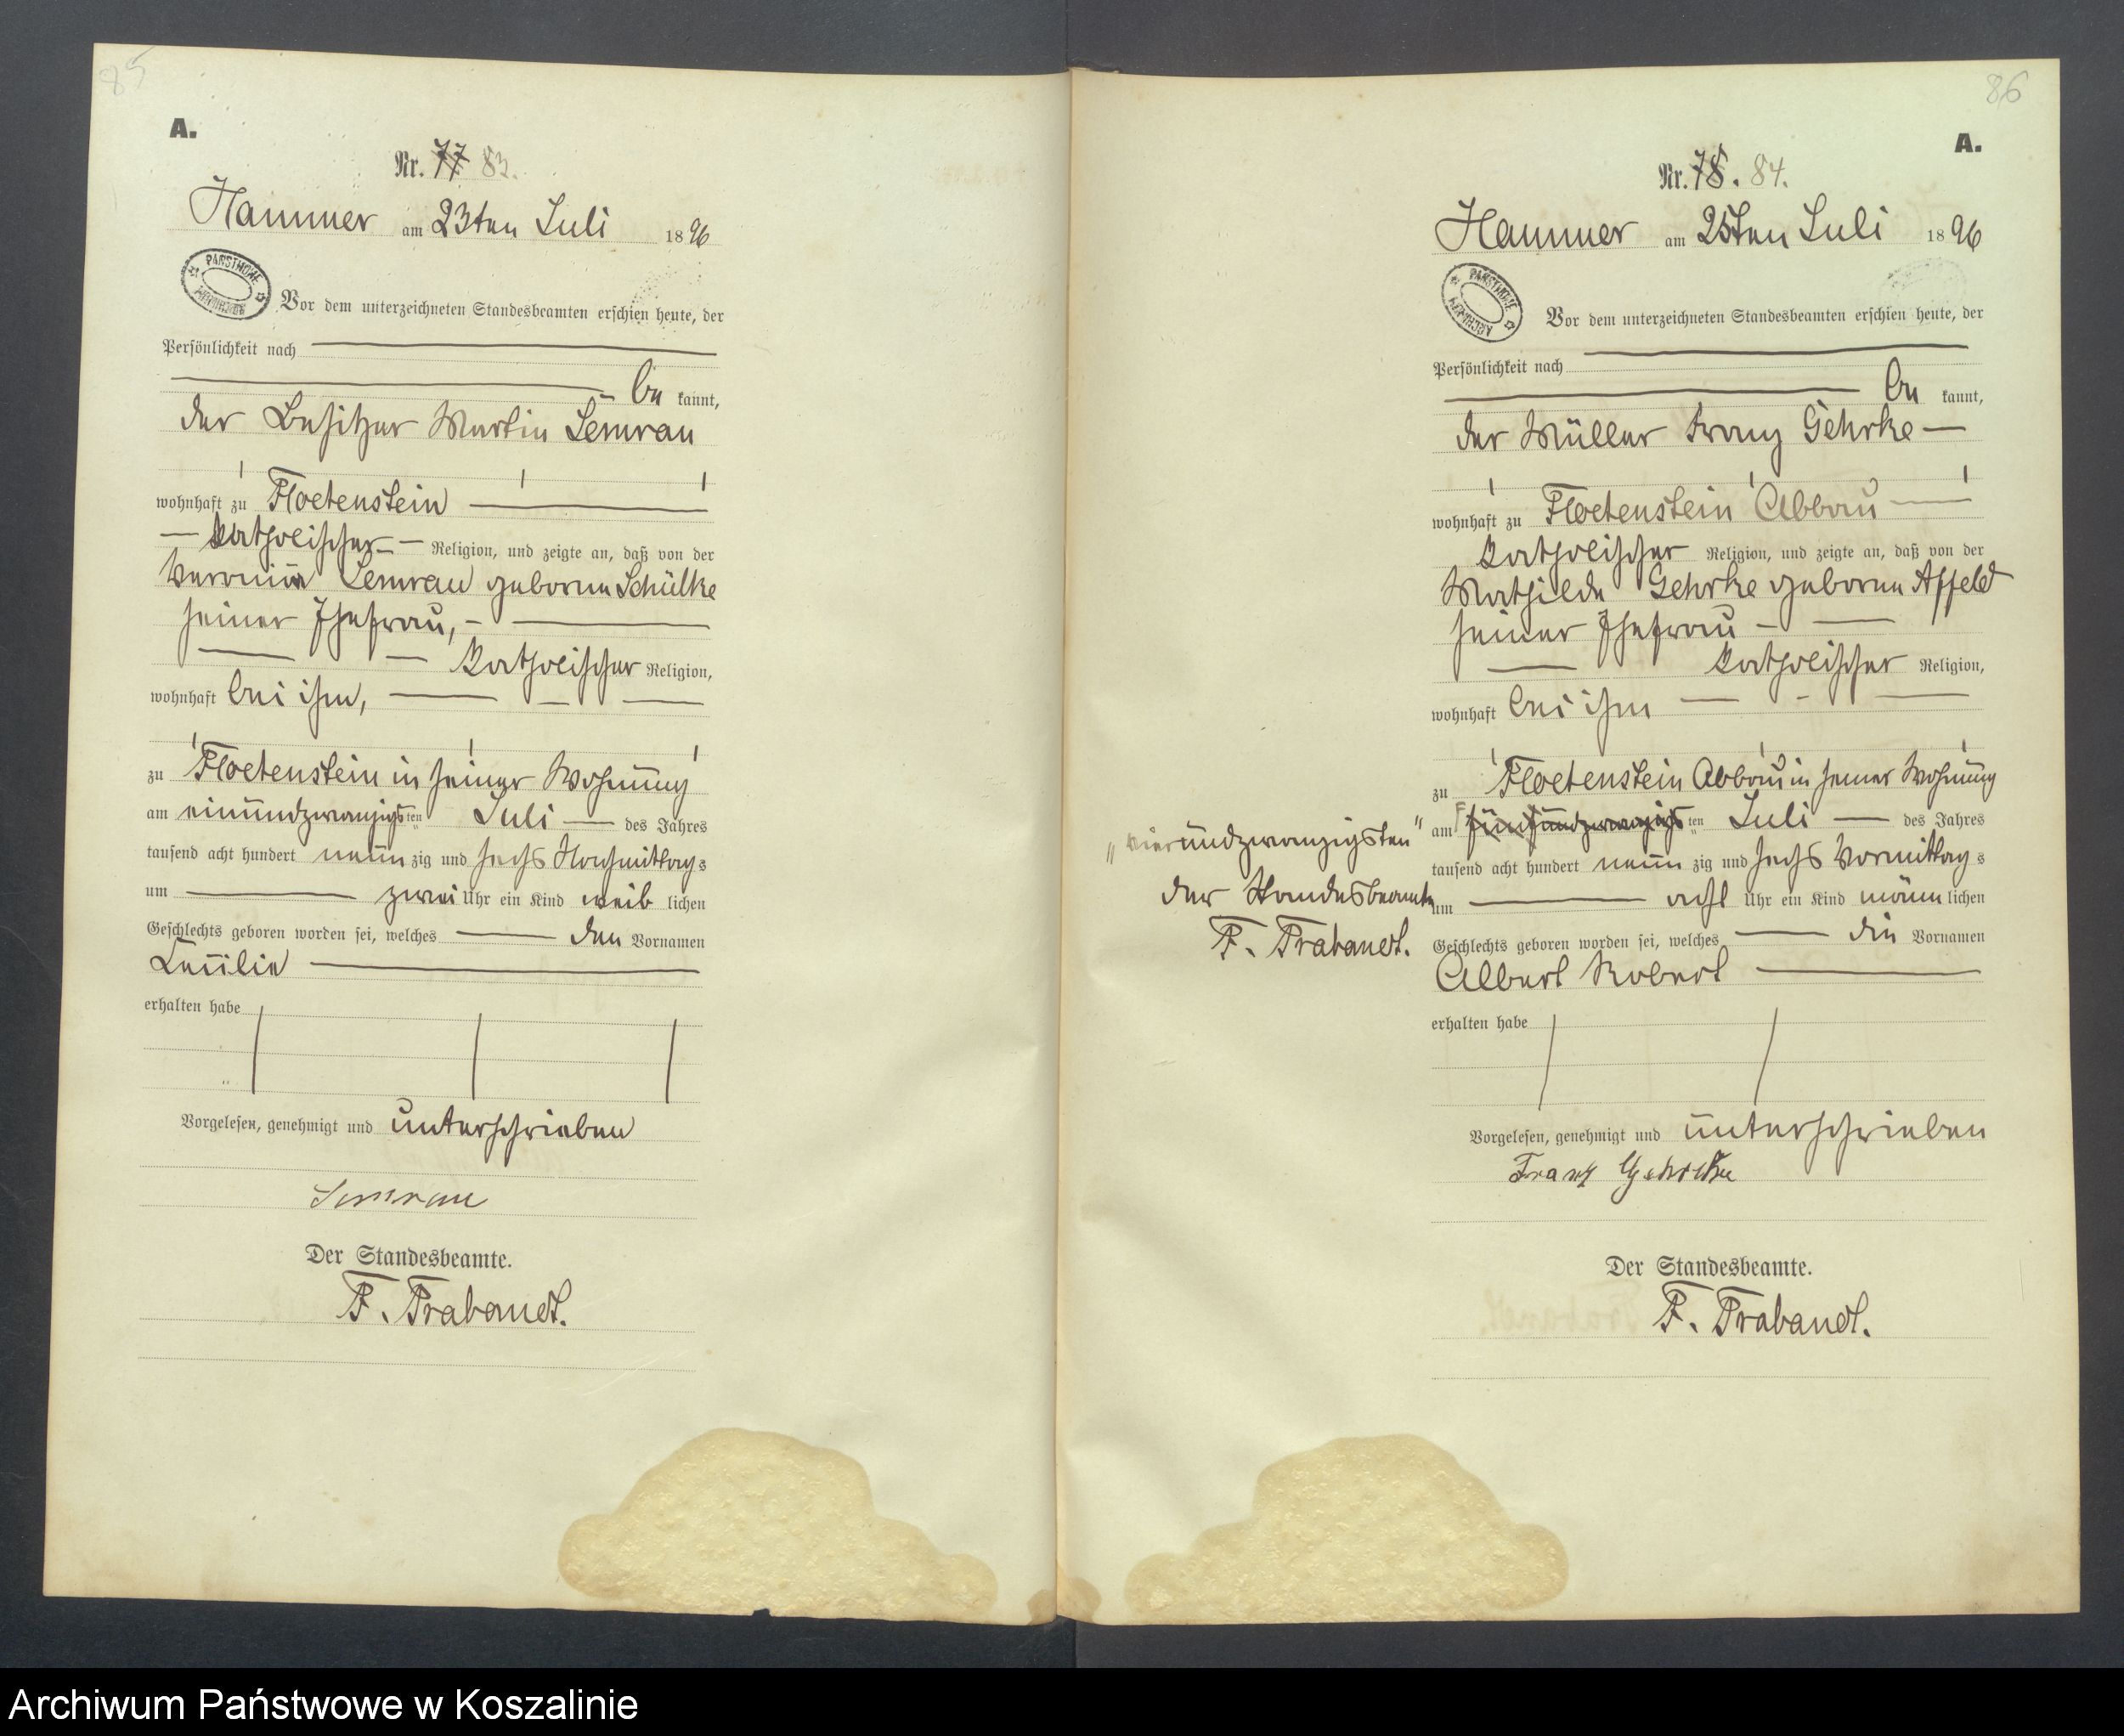 85
A.
Nr. 77 83.
Hammer am 23ten Juli 1896
PAŃSTWOWE ARCHIWUM
Vor dem unterzeichneten Standesbeamten erschien heute, der
Persönlichkeit nach
be kannt,
der Besitzer Martin Semrau
wohnhaft zu Floetenstein
katholischer Religion, und zeigte an, daß von der
Semrau geborene Schülke
seiner Ehefrau,
katholischer Religion,
wohnhaft bei ihm,
zu Floetenstein in seiner Wohnung
am einundzwanzigsten Juli des Jahres
tausend acht hundert neunzig und sechs Nachmittags
um zwei Uhr ein Kind weiblichen
Geschlechts geboren worden sei, welches den Vornamen
erhalten habe
Vorgelesen, genehmigt und unterschrieben
Semrau
Der Standesbeamte.
F. Trabandt.
86
A.
Nr. 78. 84.
Hammer am 25ten Juli 1896
PAŃSTWOWE ARCHIWUM
Vor dem unterzeichneten Standesbeamten erschien heute, der
Persönlichkeit nach
be kannt,
der Müller Franz Gehrke
wohnhaft zu Floetenstein Abbau
katholischer Religion, und zeigte an, daß von der
Mathilde Gehrke geborene Affeld
seiner Ehefrau
katholischer Religion,
wohnhaft bei ihm
zu Floetenstein Abbau in seiner Wohnung
am fünfundzwanzigsten Juli des Jahres
tausend acht hundert neunzig und sechs Vormittags
um acht Uhr ein Kind männlichen
Geschlechts geboren worden sei, welches die Vornamen
Albert Robert
erhalten habe
Vorgelesen, genehmigt und unterschrieben
Franz Gehrke
Der Standesbeamte.
F. Trabandt.
„vierundzwanzigsten"
der Standesbeamte
F. Trabandt.
Archiwum Państwowe w Koszalinie